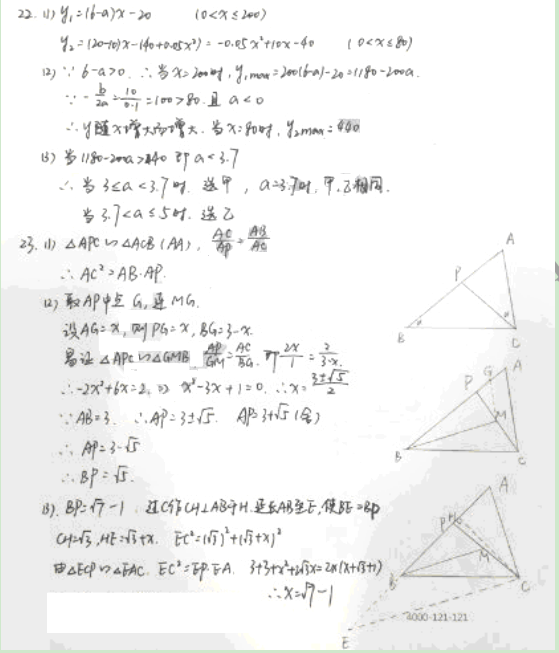 22. (1) y₁=(6-a)x-20 (0<x≤200)
y₂=(20-10)x-(40+0.05x²)=-0.05x²+10x-40 (0<x≤80)
(2) ∵6-a>0. ∴当x=200时, y₁max=200(6-a)-20=1180-200a.
∵-b/2a=10/0.1=100>80. 且 a<0
∴y随x增大而增大. 当x=80时, y₂max=440
(3) 当1180-200a>440 即a<3.7
∴当3≤a<3.7时. 选甲, a=3.7时, 甲,乙相同.
当3.7<a≤5时. 选乙
23. (1) △APC∽△ACB (AA), AC/AP=AB/AC
∴AC²=AB·AP.
(2) 取AP中点G, 连MG.
设AG=x, 则PG=x, BG=3-x.
易证△APC∽△GMB AP/GM=AC/BG. 即2x/1=2/3-x.
∴-2x²+6x=2, ⇒ x²-3x+1=0. ∴x=3±√5/2
∵AB=3. ∴AP=3±√5. AP=3+√5(舍)
∴AP=3-√5
∴BP=√5.
(3). BP=√7-1. 过C作CH⊥AB于H. 延长AB至E, 使BE=BP
CH=√3, HE=√3+x. EC²=(√3)²+(√3+x)²
由△ECP∽△EAC. EC²=EP·EA. 3+3+x²+2√3x=2x(x+√3+1)
∴x=√7-1
A
P
B
C
A
G
P
M
B
C
A
P
H
M
B
C
E
4000-121-121